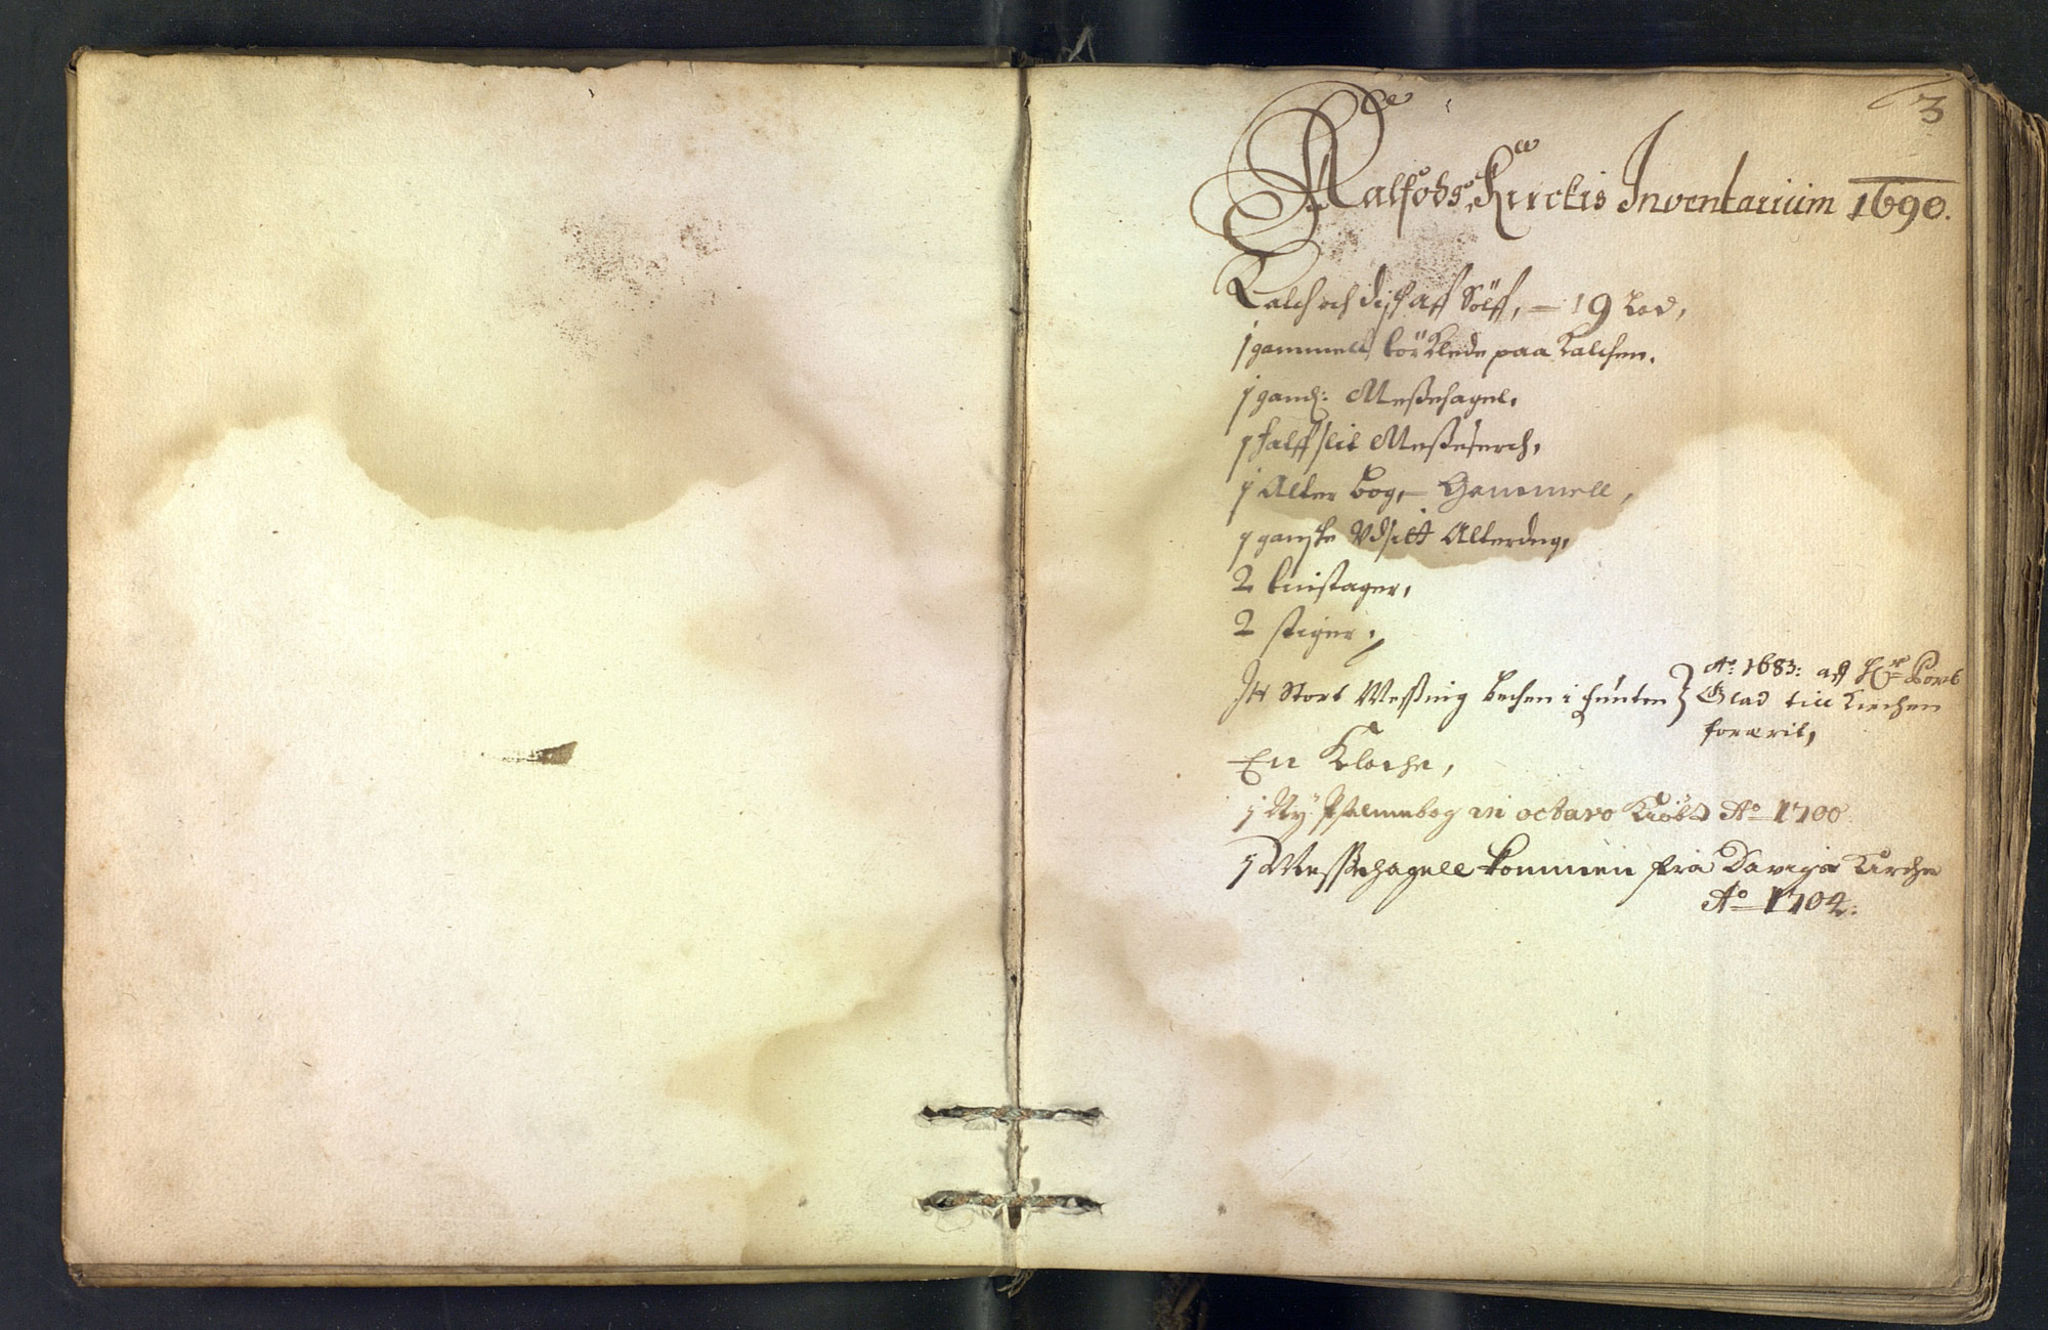 3
Kirckis Inventarium 1690.
Kalch och disk aff Sölff, – 19 Lod,
1 gammell Klede paa Kalchen.
1 gaml: Messehagel,
1 halffslit Messeserch,
1 Alter bog, – Gammell,
1 ganske Vdslitt Alterdug,
2 liusstager,
2 stiger,
Itt Stort Messing bechen i funten } Ao 1683: aff Hr
till Kirchen
forærit,
En Kloche,
1 Ny Psalmebog in octavo Kiöbt Ao 1700
1 Messehagell kommen fra Kirche
Ao 1704.